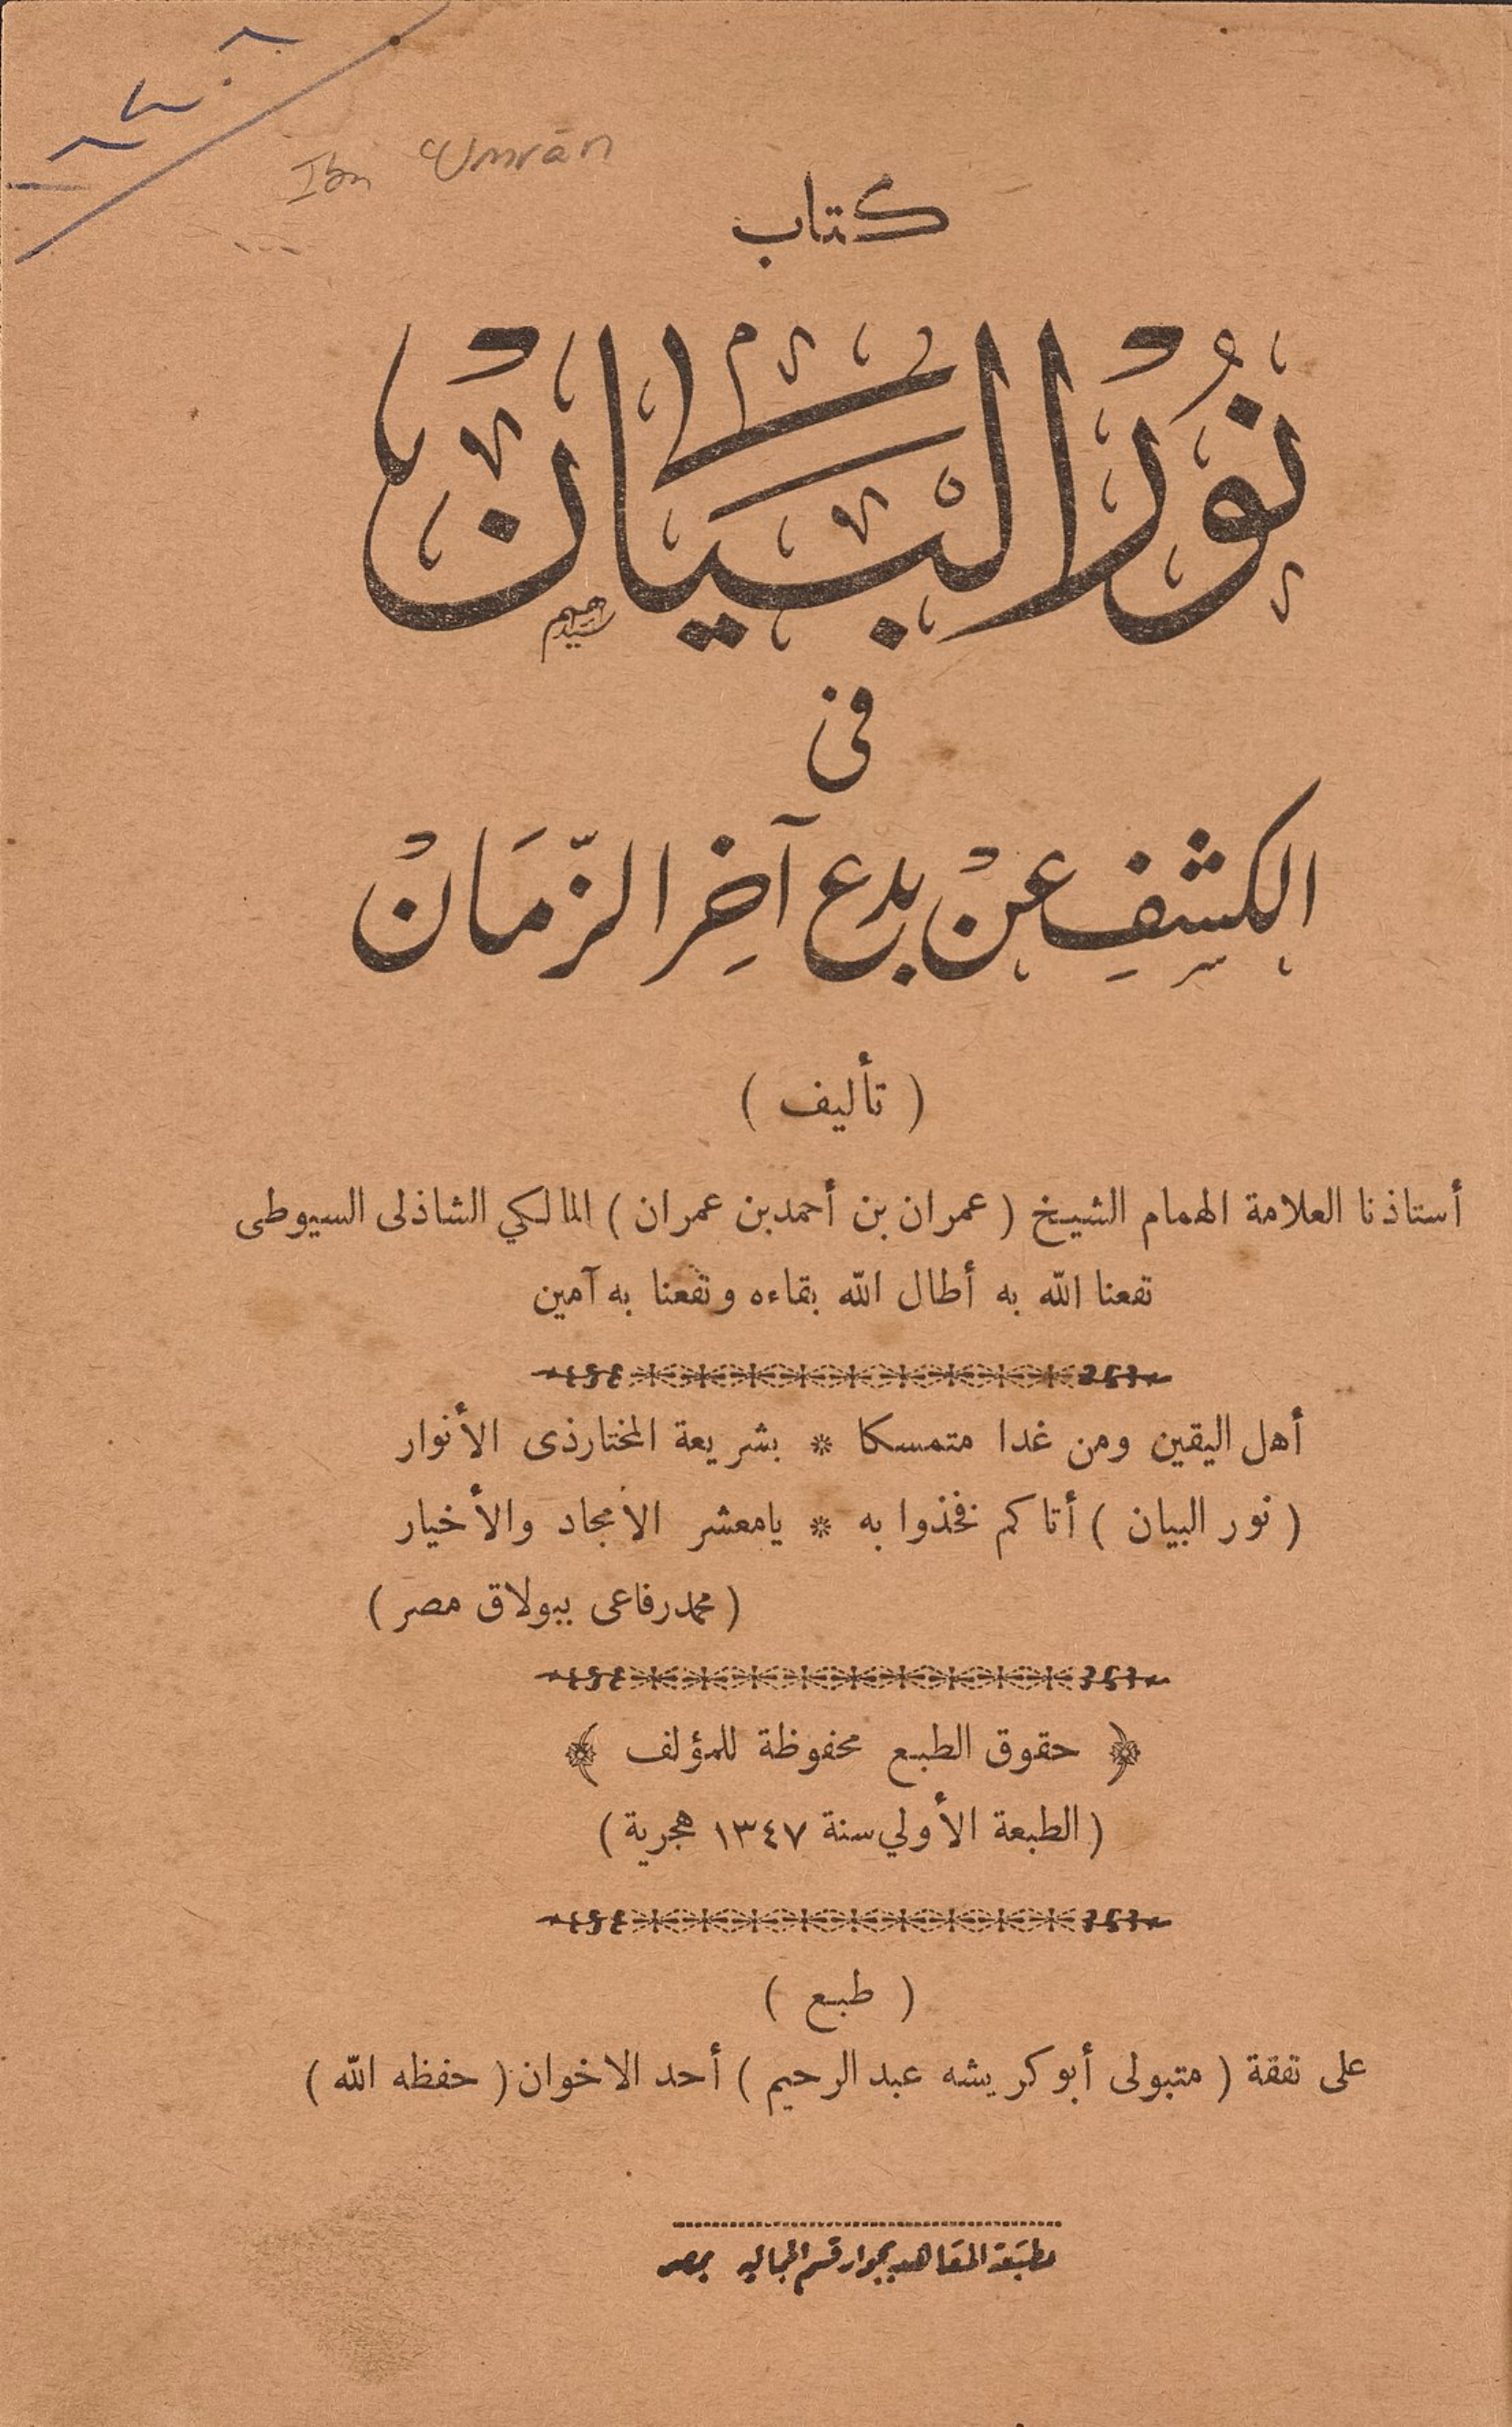 Ibn ʿUmrān
كتاب
نُورُ الْبَيَانْ
فى
الكشفِ عنْ بدع آخِر الزّمَانْ
( تأليف )
أستاذنا العلامة الهمام الشيخ ( عمران بن أحمد بن عمران ) المالكي الشاذلى السيوطى
نفعنا الله به أطال الله بقاءه ونفعنا به آمين
أهل اليقين ومن غدا متمسكا * بشريعة المختار ذى الأنوار
( نور البيان ) أتاكم فخذوا به * يامعشر الأمجاد والأخيار
( محمد رفاعى ببولاق مصر )
﴿ حقوق الطبع محفوظة للمؤلف ﴾
( الطبعة الأولي سنة ١٣٤٧ هجرية )
( طبع )
على نفقة ( متبولى أبو كريشه عبد الرحيم ) أحد الاخوان ( حفظه الله )
مطبعة المعاهد بجوار قسم الجماليه بمصر